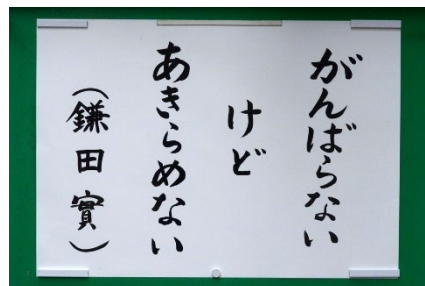 がんばらない
けど
あきらめない
（鎌田實）